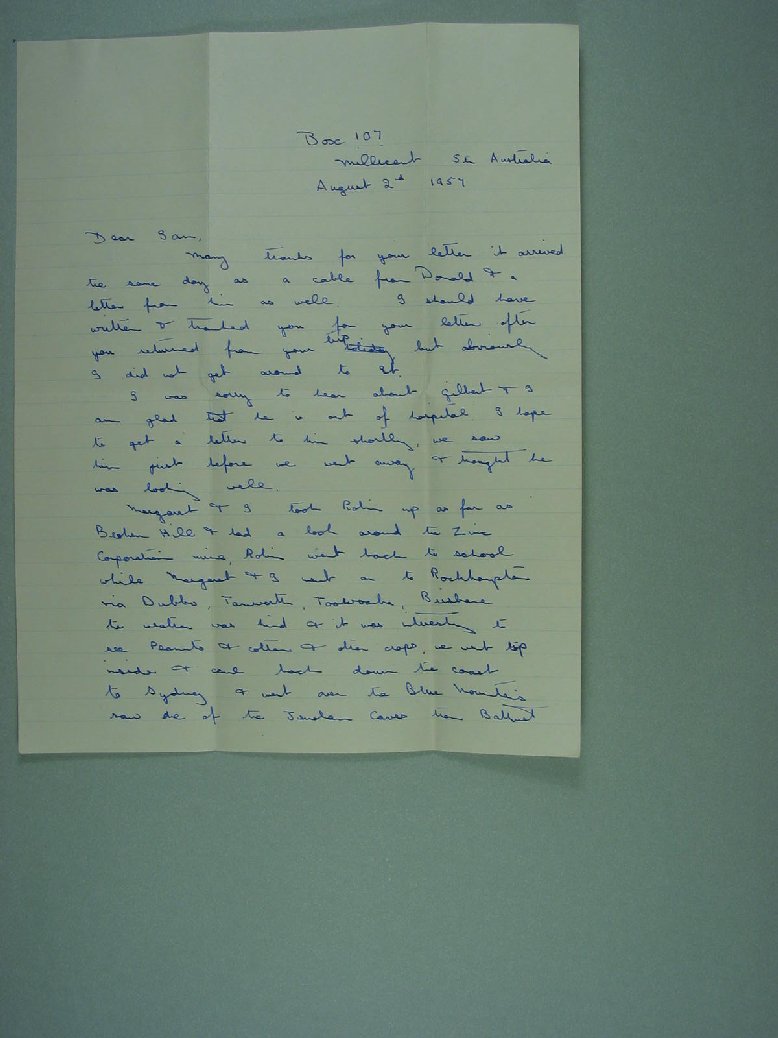 Box 107
Millicent Sth Australia
August 2nd 1957
Dear Sam,
Many thanks for your letter it arrived
the same day as a cable from Donald & a
letter from him as well. I should have
written & thanked you for your letter after
you returned from your trip but obviously
I did not get around to it.
I was sorry to hear about Gilbert & I
am glad that he is out of hospital I hope
to get a letter to him shortly, we saw
him just before we went away & thought he
was looking well.
Margaret & I took Robin up as far as
Broken Hill & had a look around the Zinc
Corporation mine, Robin went back to school
while Margaret & I went on to Rockhampton
via Dubbo, Tamworth, Toowoomba, Brisbane
the weather was kind & it was interesting to
see Peanuts & cotton & other crops, we went up
inside & came back down the coast
to Sydney & went over the Blue Mountains
saw of the Jenolan Caves then